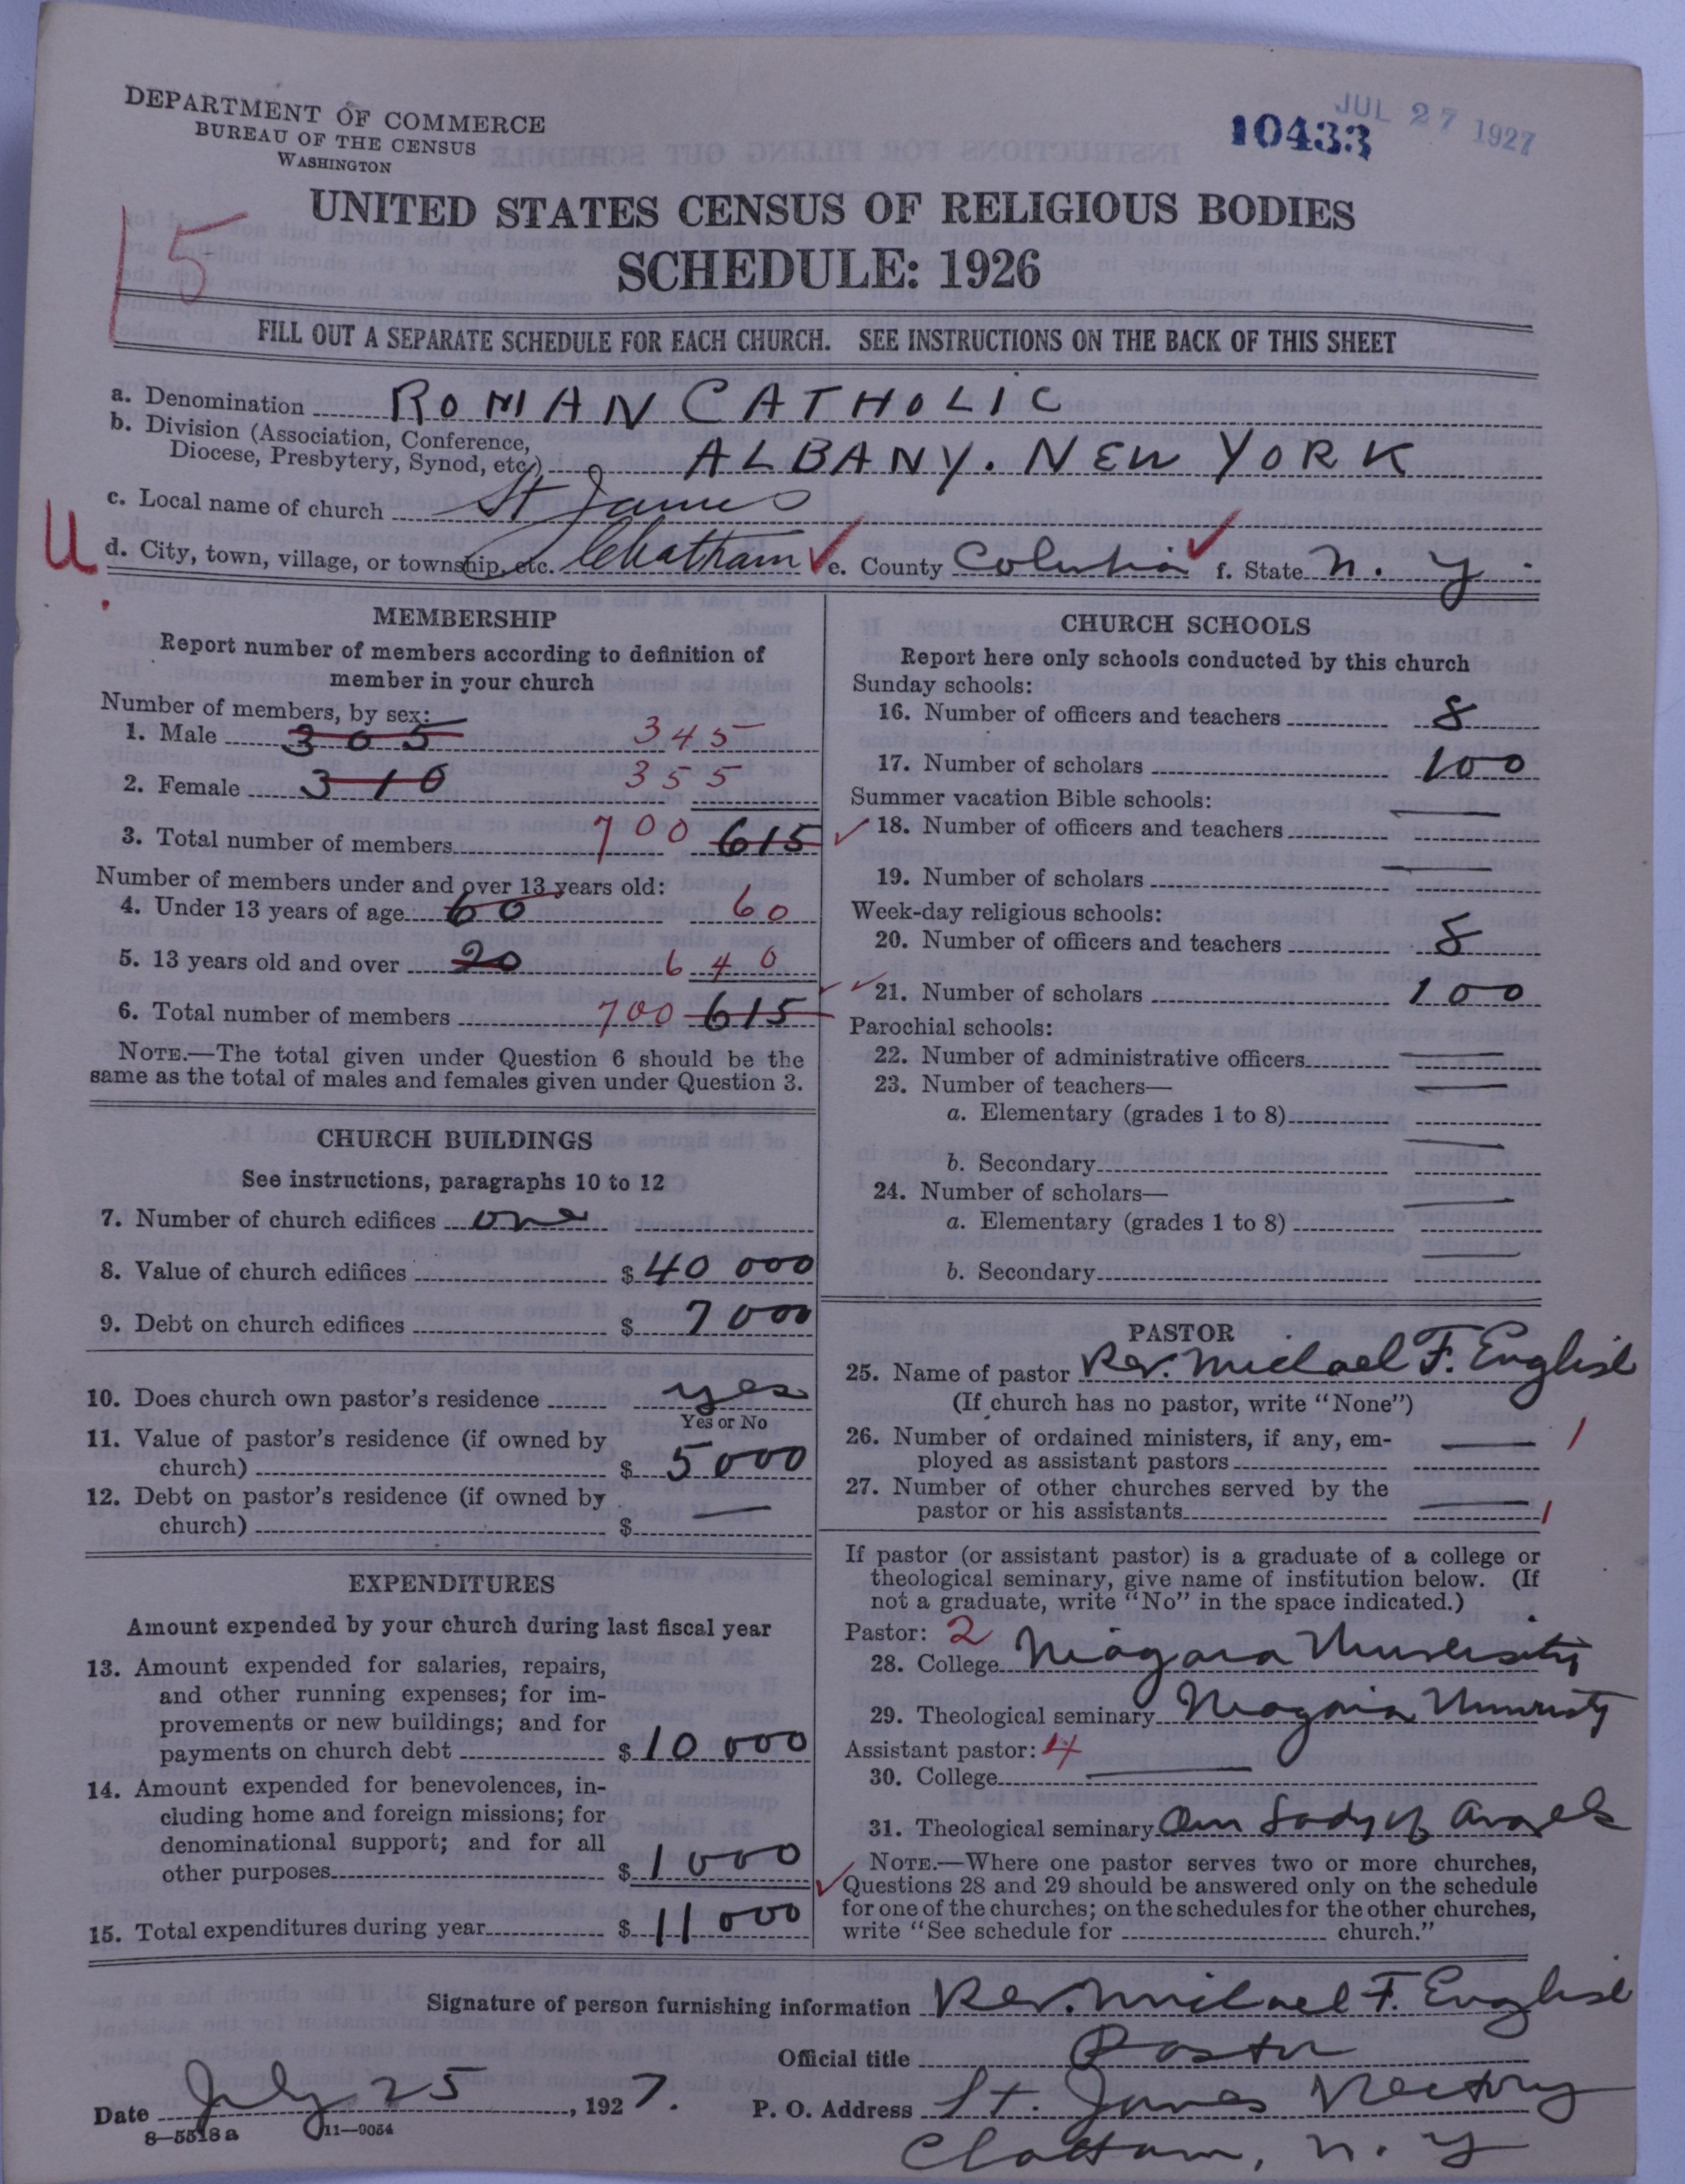 DEPARTMENT OF COMMERCE
BUREAU OF THE CENSUS
WASHINGTON
10433
JUL 27 1927
UNITED STATES CENSUS OF RELIGIOUS BODIES
SCHEDULE: 1926
15
FILL OUT A SEPARATE SCHEDULE FOR EACH CHURCH. SEE INSTRUCTIONS ON THE BACK OF THIS SHEET
a. Denomination ROMAN CATHOLIC
b. Division (Association, Conference,
Diocese, Presbytery, Synod, etc.) ALBANY. NEW YORK
c. Local name of church St James
U d. City, town, village, or township, etc. Chatham e. County Columbia f. State N. Y.
MEMBERSHIP
Report number of members according to definition of
member in your church
Number of members, by sex:
1. Male 305 345
2. Female 310 355
3. Total number of members 700 615
Number of members under and over 13 years old:
4. Under 13 years of age 60 60
5. 13 years old and over 20 640
6. Total number of members 700 615
NOTE.—The total given under Question 6 should be the
same as the total of males and females given under Question 3.
CHURCH BUILDINGS
See instructions, paragraphs 10 to 12
7. Number of church edifices one
8. Value of church edifices $ 40 000
9. Debt on church edifices $ 7000
10. Does church own pastor's residence yes
Yes or No
11. Value of pastor's residence (if owned by
church) $ 5000
12. Debt on pastor's residence (if owned by
church) $ —
EXPENDITURES
Amount expended by your church during last fiscal year
13. Amount expended for salaries, repairs,
and other running expenses; for im-
provements or new buildings; and for
payments on church debt $ 10 000
14. Amount expended for benevolences, in-
cluding home and foreign missions; for
denominational support; and for all
other purposes $ 1000
15. Total expenditures during year $ 11 000
CHURCH SCHOOLS
Report here only schools conducted by this church
Sunday schools:
16. Number of officers and teachers 8
17. Number of scholars 100
Summer vacation Bible schools:
18. Number of officers and teachers —
19. Number of scholars —
Week-day religious schools:
20. Number of officers and teachers 8
21. Number of scholars 100
Parochial schools:
22. Number of administrative officers —
23. Number of teachers— —
a. Elementary (grades 1 to 8)
b. Secondary —
24. Number of scholars— —
a. Elementary (grades 1 to 8)
b. Secondary —
PASTOR
25. Name of pastor Rev. Michael F. English
(If church has no pastor, write "None")
26. Number of ordained ministers, if any, em-
ployed as assistant pastors — 1
27. Number of other churches served by the
pastor or his assistants — 1
If pastor (or assistant pastor) is a graduate of a college or
theological seminary, give name of institution below. (If
not a graduate, write "No" in the space indicated.)
Pastor: 2
28. College Niagara University
29. Theological seminary Niagara University
Assistant pastor: 4
30. College —
31. Theological seminary Our Lady of Angels
NOTE.—Where one pastor serves two or more churches,
Questions 28 and 29 should be answered only on the schedule
for one of the churches; on the schedules for the other churches,
write "See schedule for church."
Signature of person furnishing information Rev. Michael F. English
Official title Pastor
Date July 25, 1927.
P. O. Address St. James Rectory
Chatham, N. Y
8—5518a 11—9054